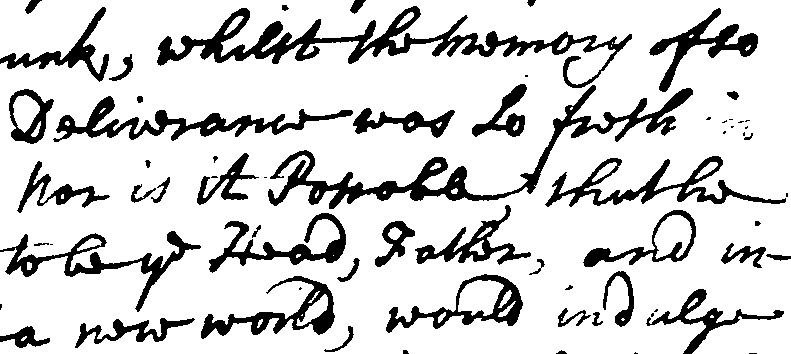 unk, whilst the memory of so
Deliverance was so fresh in
Nor is it Possoble, that he
to be yͤ Head, Father, and in-
a new world, would indulge